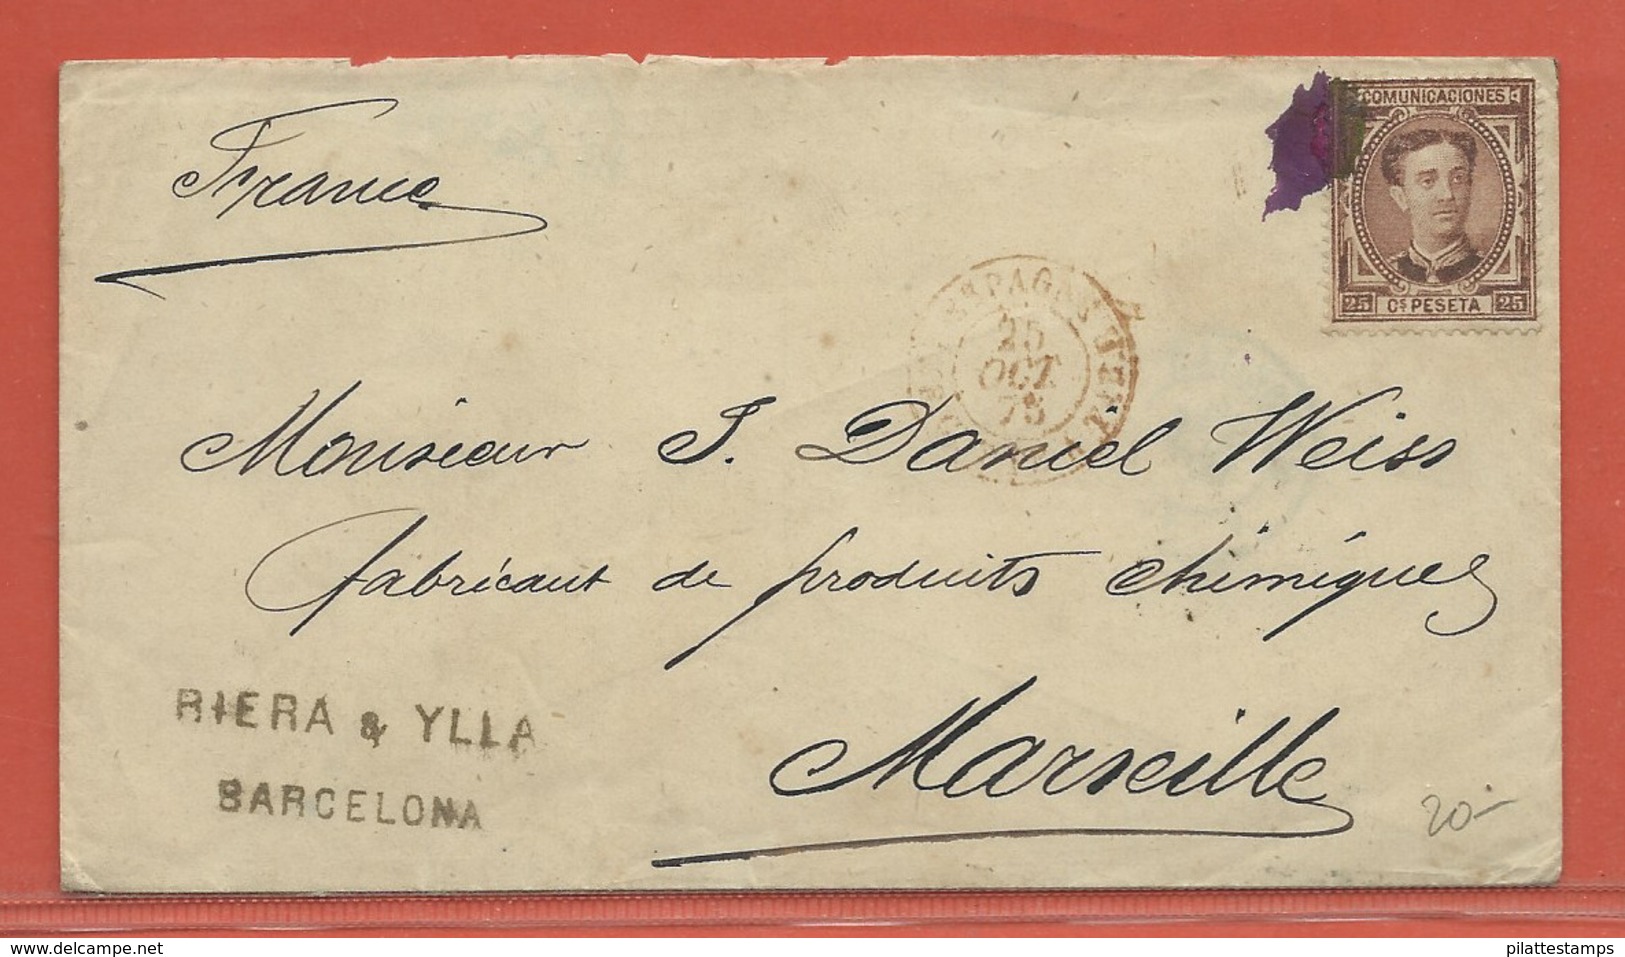 France
COMUNICACIONES
25 Cs PESETA 25
ESPAGNE
25
OCT
75
Monsieur J. Daniel Weiss
fabricant de produits chimiques
Marseille
RIERA & YLLA
BARCELONA
20-
© www.delcampe.net
pilattestamps